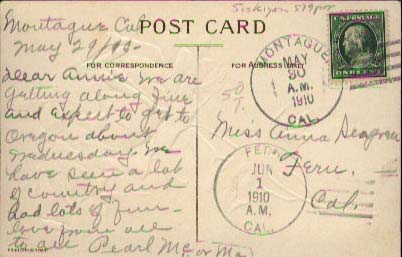 Siskiyou
Montague Cal
May 29/10-
POST CARD
FOR CORRESPONDENCE
FOR ADDRESS ONLY
Dear Annie We are
getting along fine
and expect to get to
Oregon about
Wednesday. We
have seen a lot
of country and
had lots of fun-
love from all
to all Pearl Mc, or Ma
50
T.
MONTAGUE
MAY
30
A.M.
1910
CAL.
ONE CENT
Miss Anna Seagren
Fern,
Cal.
FERN
JUN
1
1910
A.M.
CAL.